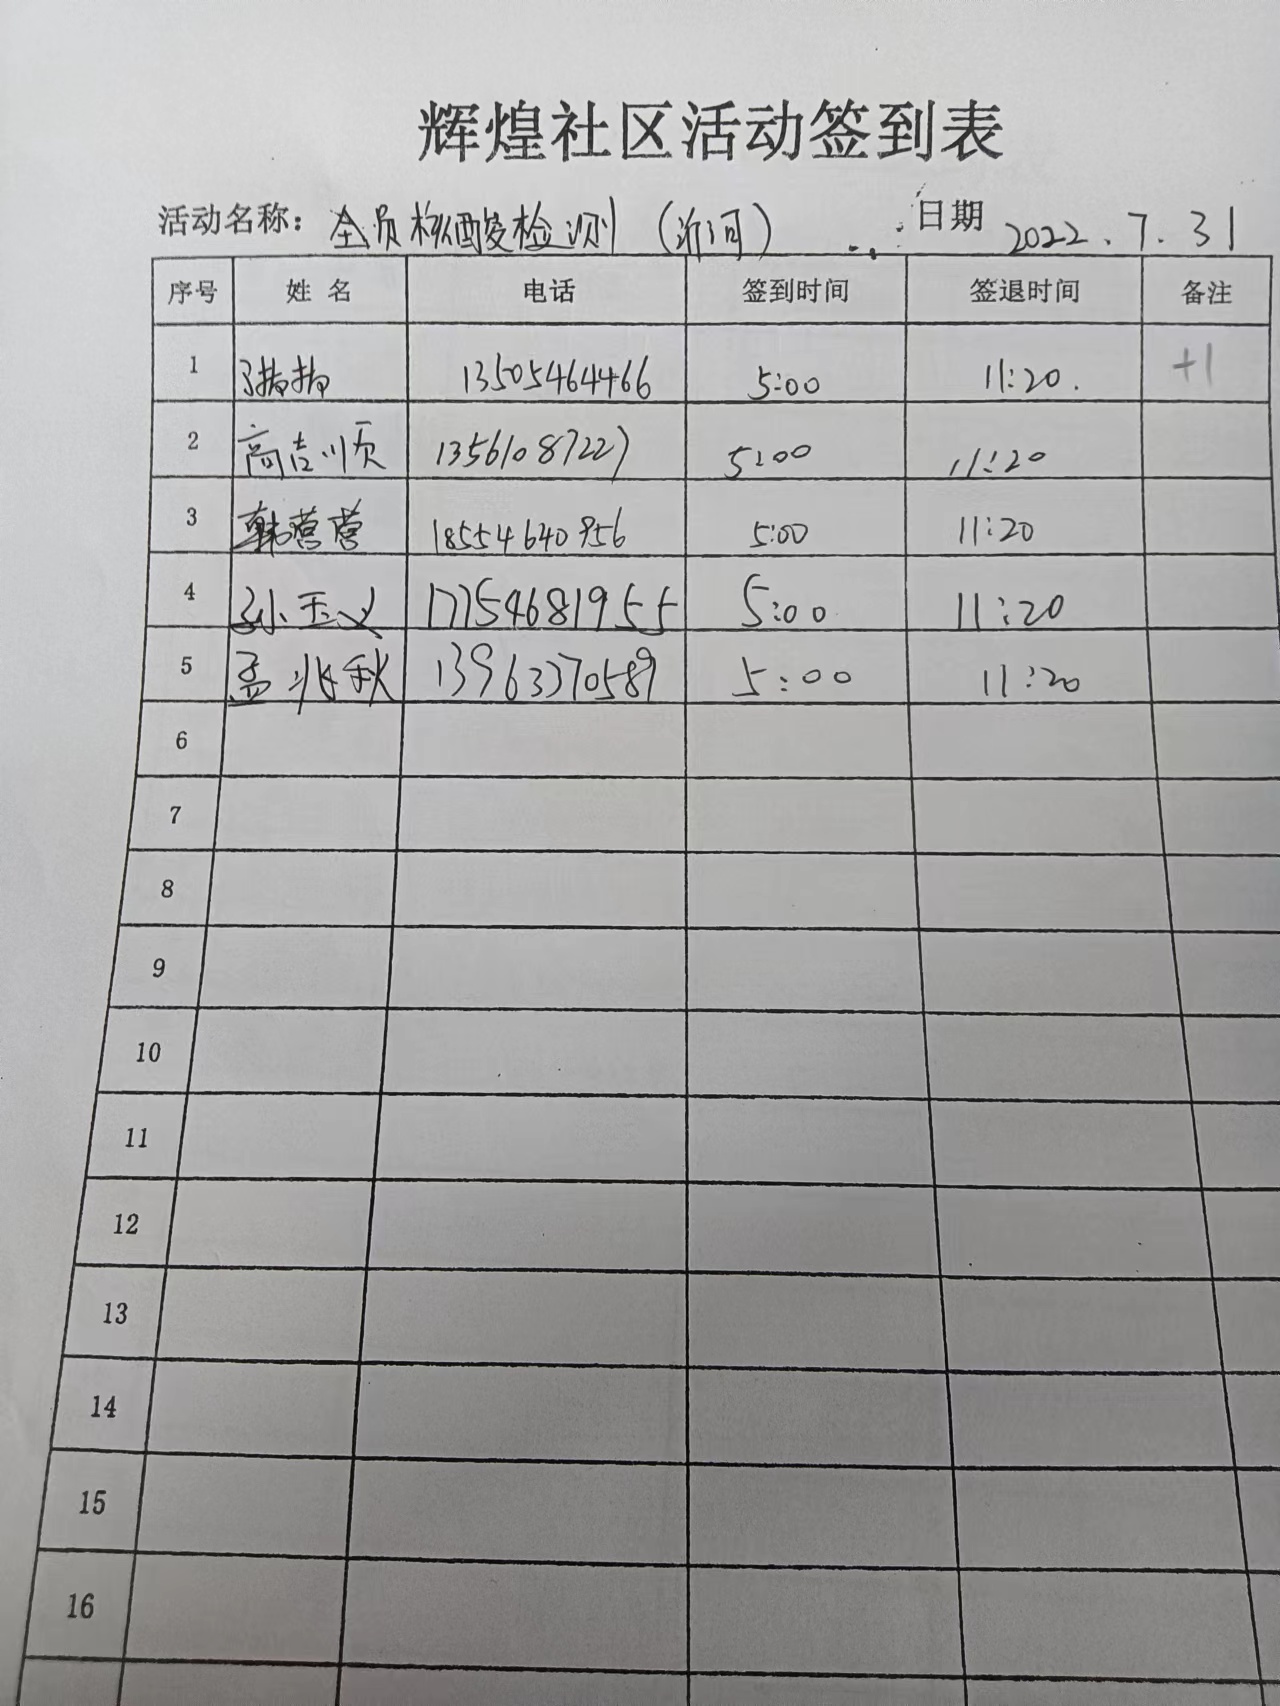 辉煌社区活动签到表
活动名称：全员核酸检测（沂河） 日期 2022.7.31
序号 姓名 电话 签到时间 签退时间 备注
1 13505464466 5:00 11:20. +1
2 高吉顺 13561087227 5:00 11:20
3 韩营营 18554640956 5:00 11:20
4 孙玉义 17754681955 5:00 11:20
5 孟兆秋 13963370589 5:00 11:20
6
7
8
9
10
11
12
13
14
15
16